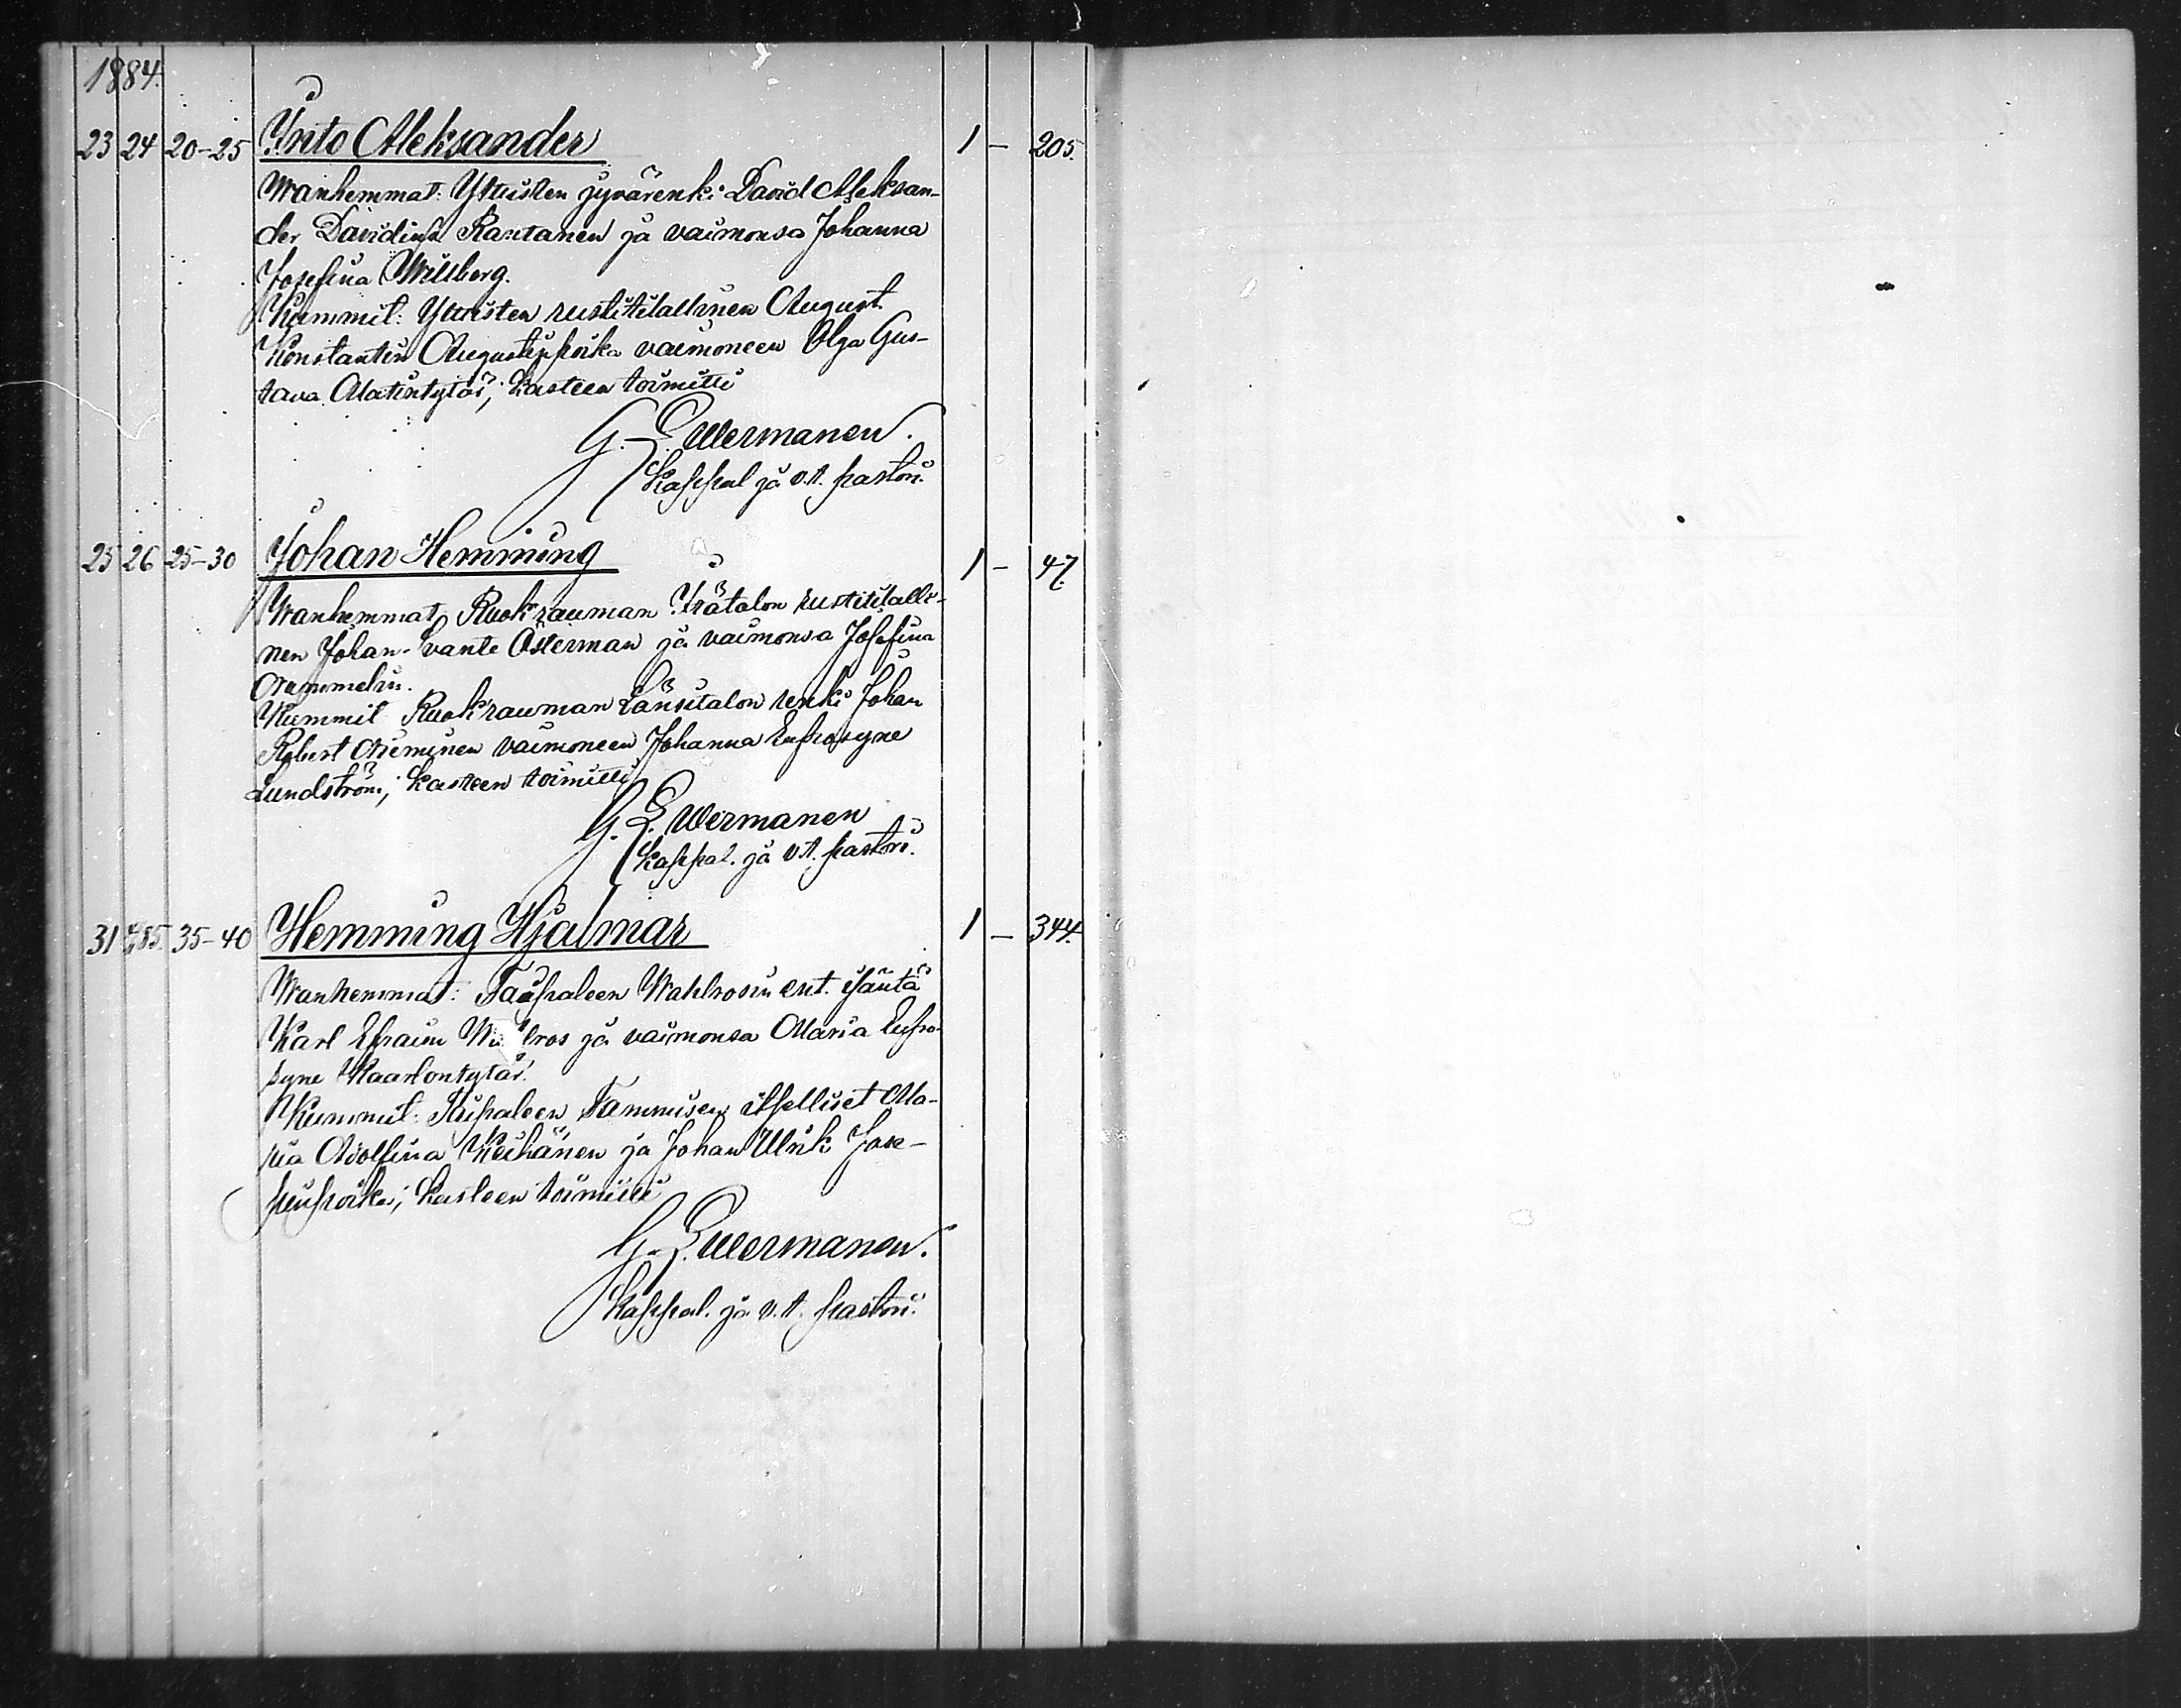 1884.
23 24 20-25 Into Aleksander 1 - 205.
Wanhemmat: Yttisten jyvärenki David Aleksan-
der Davidinp. Rantanen ja vaimonsa Johanna
Josefina Willberg.
Kummit: Yttisten rustitilallinen August
Konstantin Augustinpoika vaimoneen Olga Gus-
tava Matintytär; kasteen toimitti
G. E. Wermanen.
Kappal. ja v.t. pastori.
25 26 25-30 Johan Hemming 1 - 47.
Wanhemmat, Ruokrauman Ylätalon rustitilalli-
nen Johan Svante Österman ja vaimonsa Josefina
Nummelin.
Kummit Ruokrauman Länsitalon renki Johan
Robert Nieminen vaimoneen Johanna Eufrosyne
Lundström; kasteen toimitti
G. E. Wermanen
Kappal. ja v.t. pastori.
31 35-40 Hemming Hjalmar 1 - 344.
Wanhemmat: Taipaleen Wahlrosin ent. isäntä
Karl Efraim ja vaimonsa Maria Eufro-
syne Kaarlontytär.
Kummit: Taipaleen Tammisen itselliset Ma-
ria Adolfina ja Johan Ulrik Jose-
pinpoika; kasteen toimitti
G. E. Wermanen.
Kappal. ja v.t. pastori.